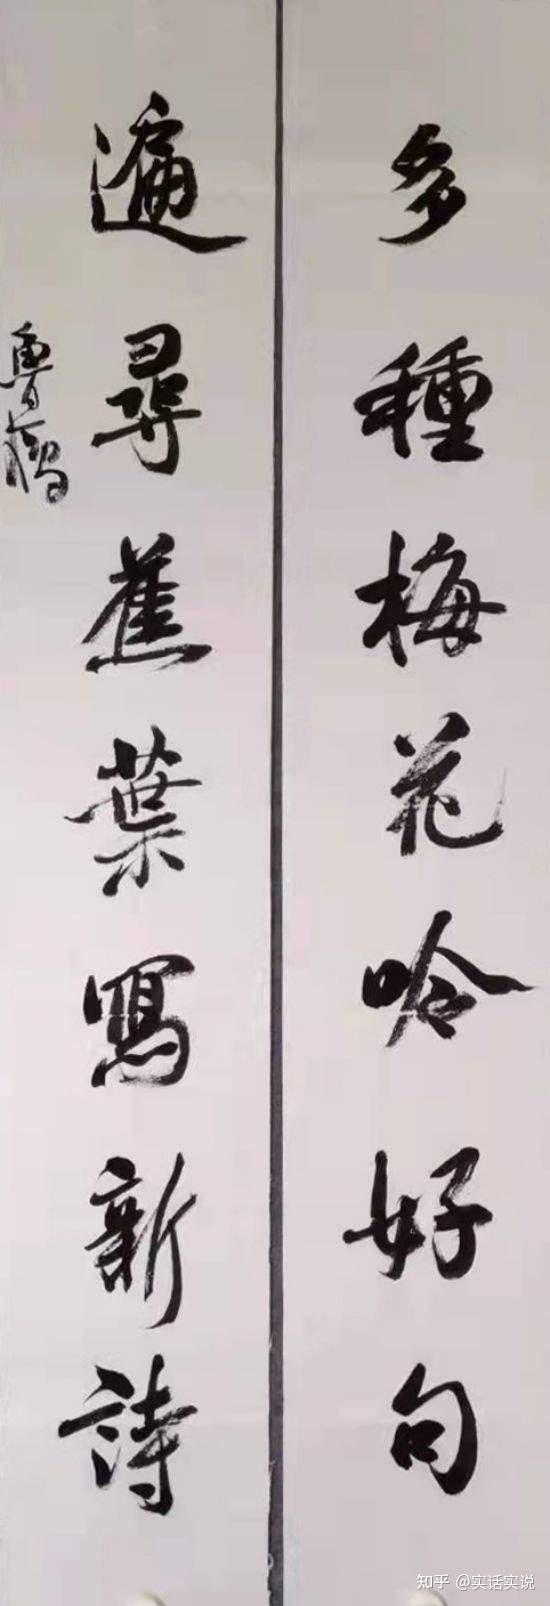 多種梅花吟好句
遍尋蕉葉寫新詩
魯
知乎 @实话实说